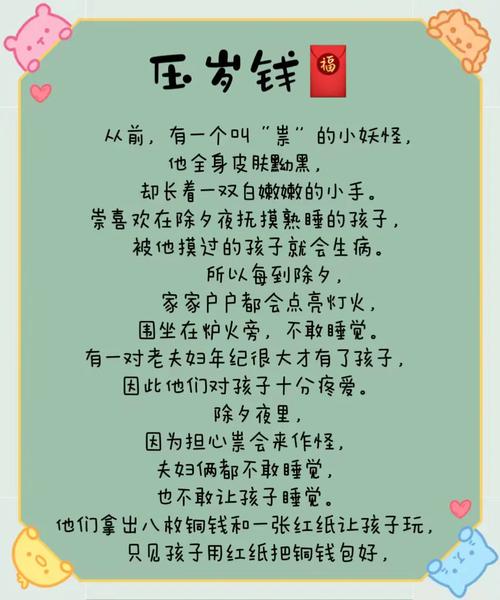 压岁钱
福
从前，有一个叫“祟”的小妖怪，
他全身皮肤黝黑，
却长着一双白嫩嫩的小手。
祟喜欢在除夕夜抚摸熟睡的孩子，
被他摸过的孩子就会生病。
所以每到除夕，
家家户户都会点亮灯火，
围坐在炉火旁，不敢睡觉。
有一对老夫妇年纪很大才有了孩子，
因此他们对孩子十分疼爱。
除夕夜里，
因为担心祟会来作怪，
夫妇俩都不敢睡觉，
也不敢让孩子睡觉。
他们拿出八枚铜钱和一张红纸让孩子玩，
只见孩子用红纸把铜钱包好，